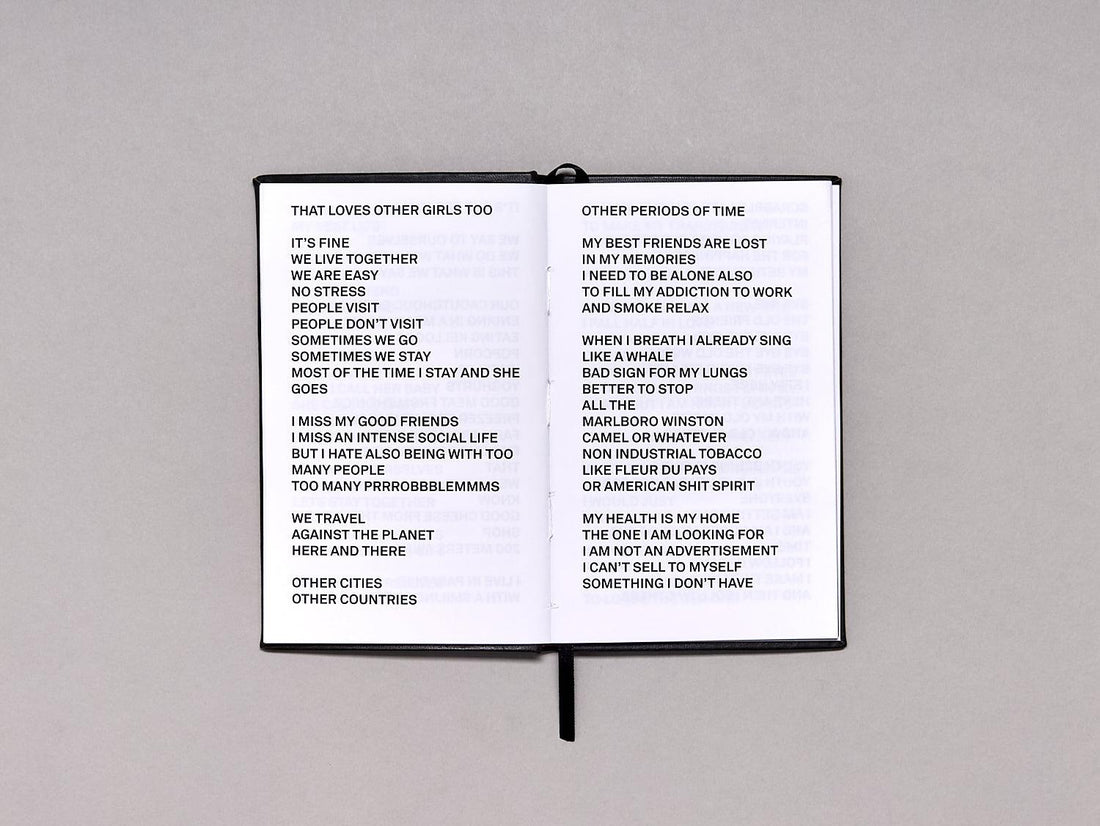 THAT LOVES OTHER GIRLS TOO
IT'S FINE
WE LIVE TOGETHER
WE ARE EASY
NO STRESS
PEOPLE VISIT
PEOPLE DON'T VISIT
SOMETIMES WE GO
SOMETIMES WE STAY
MOST OF THE TIME I STAY AND SHE
GOES
I MISS MY GOOD FRIENDS
I MISS AN INTENSE SOCIAL LIFE
BUT I HATE ALSO BEING WITH TOO
MANY PEOPLE
TOO MANY PRRROBBBLEMMMS
WE TRAVEL
AGAINST THE PLANET
HERE AND THERE
OTHER CITIES
OTHER COUNTRIES
OTHER PERIODS OF TIME
MY BEST FRIENDS ARE LOST
IN MY MEMORIES
I NEED TO BE ALONE ALSO
TO FILL MY ADDICTION TO WORK
AND SMOKE RELAX
WHEN I BREATH I ALREADY SING
LIKE A WHALE
BAD SIGN FOR MY LUNGS
BETTER TO STOP
ALL THE
MARLBORO WINSTON
CAMEL OR WHATEVER
NON INDUSTRIAL TOBACCO
LIKE FLEUR DU PAYS
OR AMERICAN SHIT SPIRIT
MY HEALTH IS MY HOME
THE ONE I AM LOOKING FOR
I AM NOT AN ADVERTISEMENT
I CAN'T SELL TO MYSELF
SOMETHING I DON'T HAVE